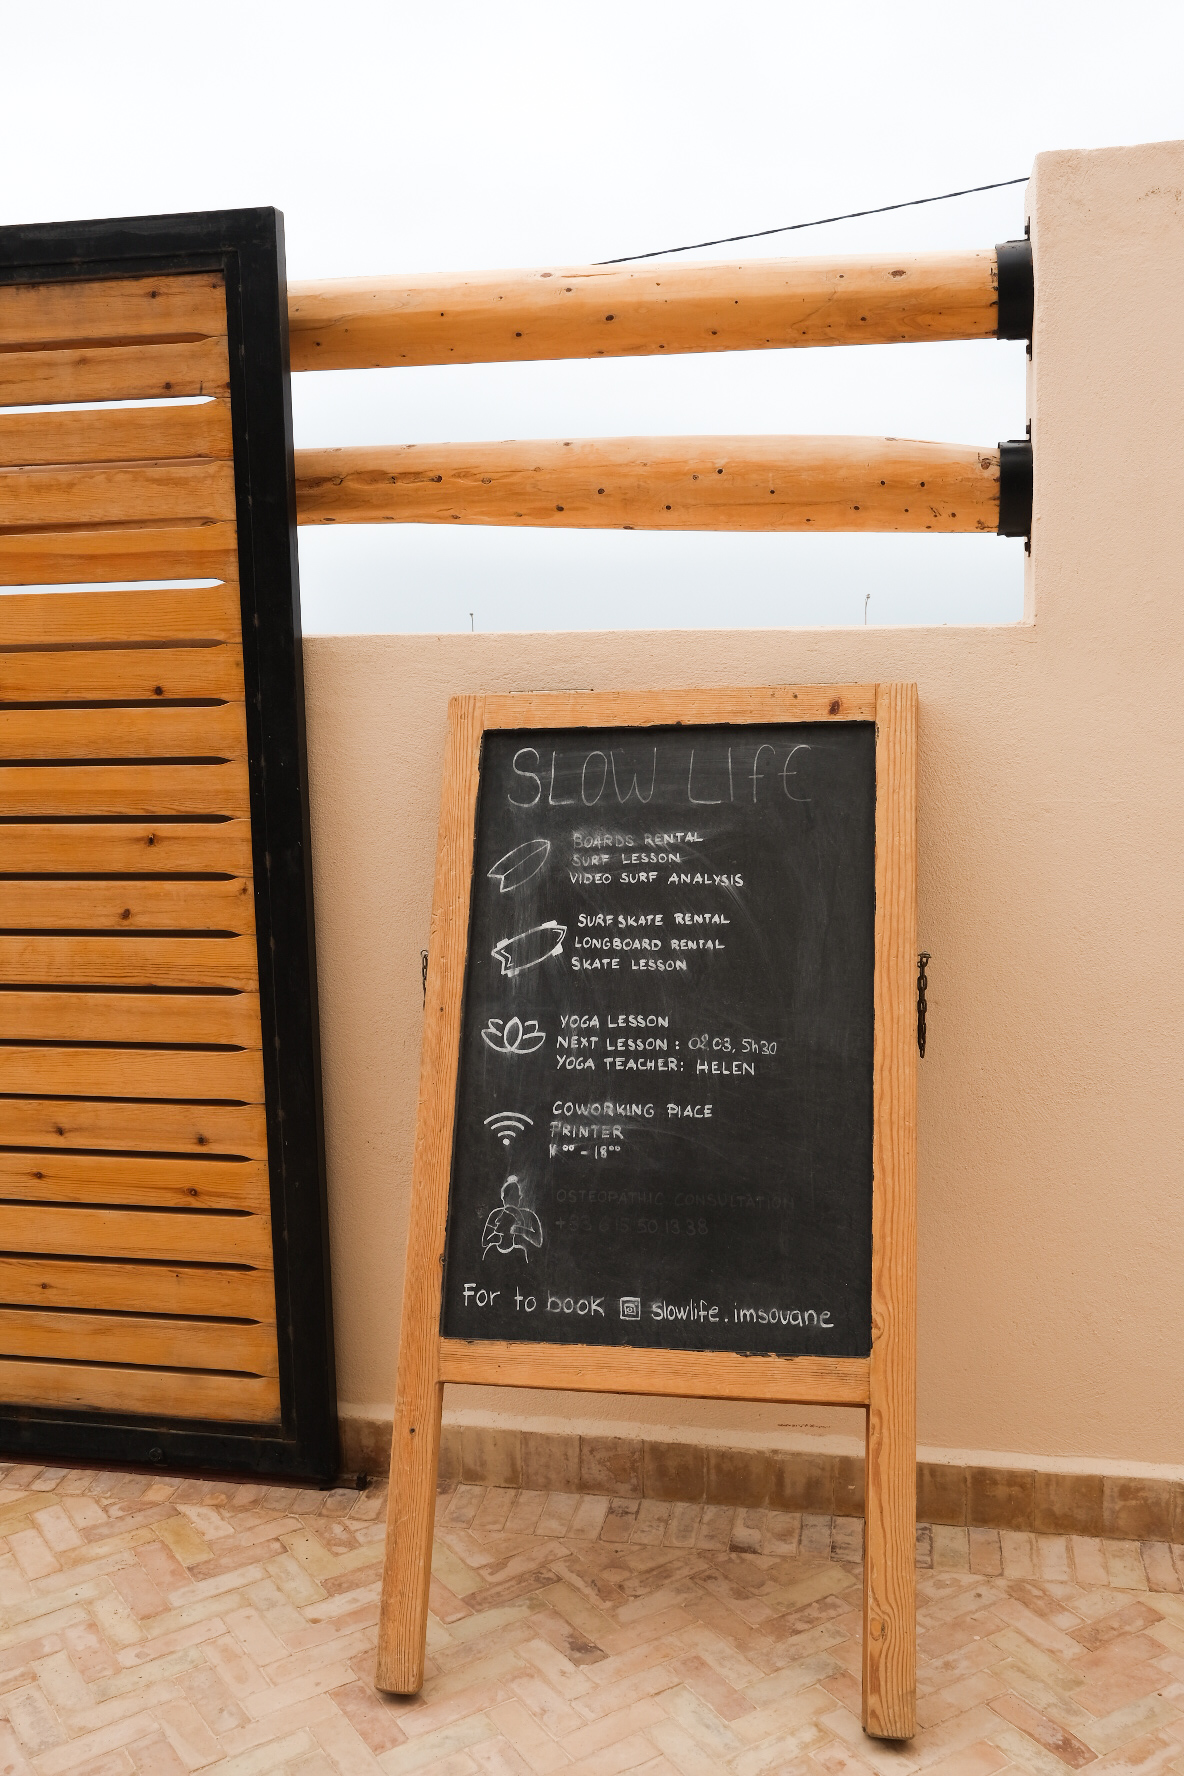 SLOW LIFE
BOARDS RENTAL
SURF LESSON
VIDEO SURF ANALYSIS
SURFSKATE RENTAL
LONGBOARD RENTAL
SKATE LESSON
YOGA LESSON
NEXT LESSON : 02.03, 5h30
YOGA TEACHER: HELEN
COWORKING PLACE
PRINTER
- 18⁰⁰
OSTEOPATHIC CONSULTATION
50.13.38
For to book slowlife.imsouane